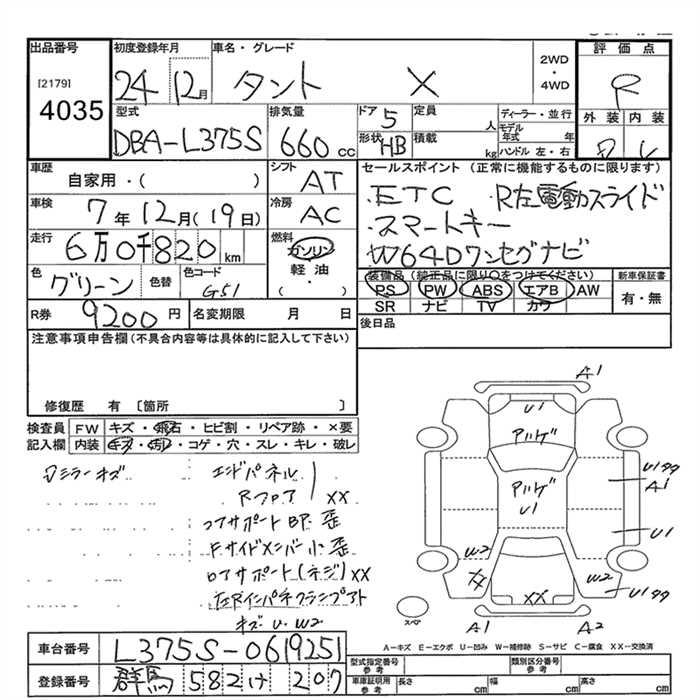 出品番号 初度登録年月 車名・グレード 2WD・4WD 評価点
[2179] 4035
24 12月 タント X R
型式 排気量 ドア 5 定員 人 ディーラー・並行 外装 内装
DBA-L375S 660cc 形状 HB 積載 kg モデル年式 年 ハンドル 左・右
車歴 シフト セールスポイント (正常に機能するものに限ります)
自家用・( ) AT
.ETC .R左電動スライド
車検 7年12月(19日) 冷房 AC
.スマートキー
走行 6万0千820km 燃料 ガソリン・軽油・( )
.W64Dワンセグナビ
色 グリーン 色替 色コード G51
装備品 (純正品に限り○をつけてください) 新車保証書
PS PW ABS エアB AW 有・無
SR ナビ TV カワ
R券 9200円 名変期限 月 日 後日品
注意事項申告欄(不具合内容等は具体的に記入して下さい)
修復歴 有 〔箇所 〕
検査員 FW キズ・飛石・ヒビ割・リペア跡・×要
記入欄 内装 キズ・汚れ・コゲ・穴・スレ・キレ・破レ
ミラーキズ
エンドパネル
Rフロア XX
コアサポートBP 歪
FサイドメンバーUN 歪
ロアサポート(ネジ)XX
キズ U. W2
A1
U1
U1
A1
U1
W2
W2
XX
A1 A2
スペア
A-キズ E-エクボ U-凹み W-補修跡 S-サビ C-腐食 XX-交換済
車台番号 L375S-0619251
登録番号 群馬 582 け 207
型式指定番号 参考 類別区分番号 参考
車庫証明用 参考 長さ cm 幅 cm 高さ cm